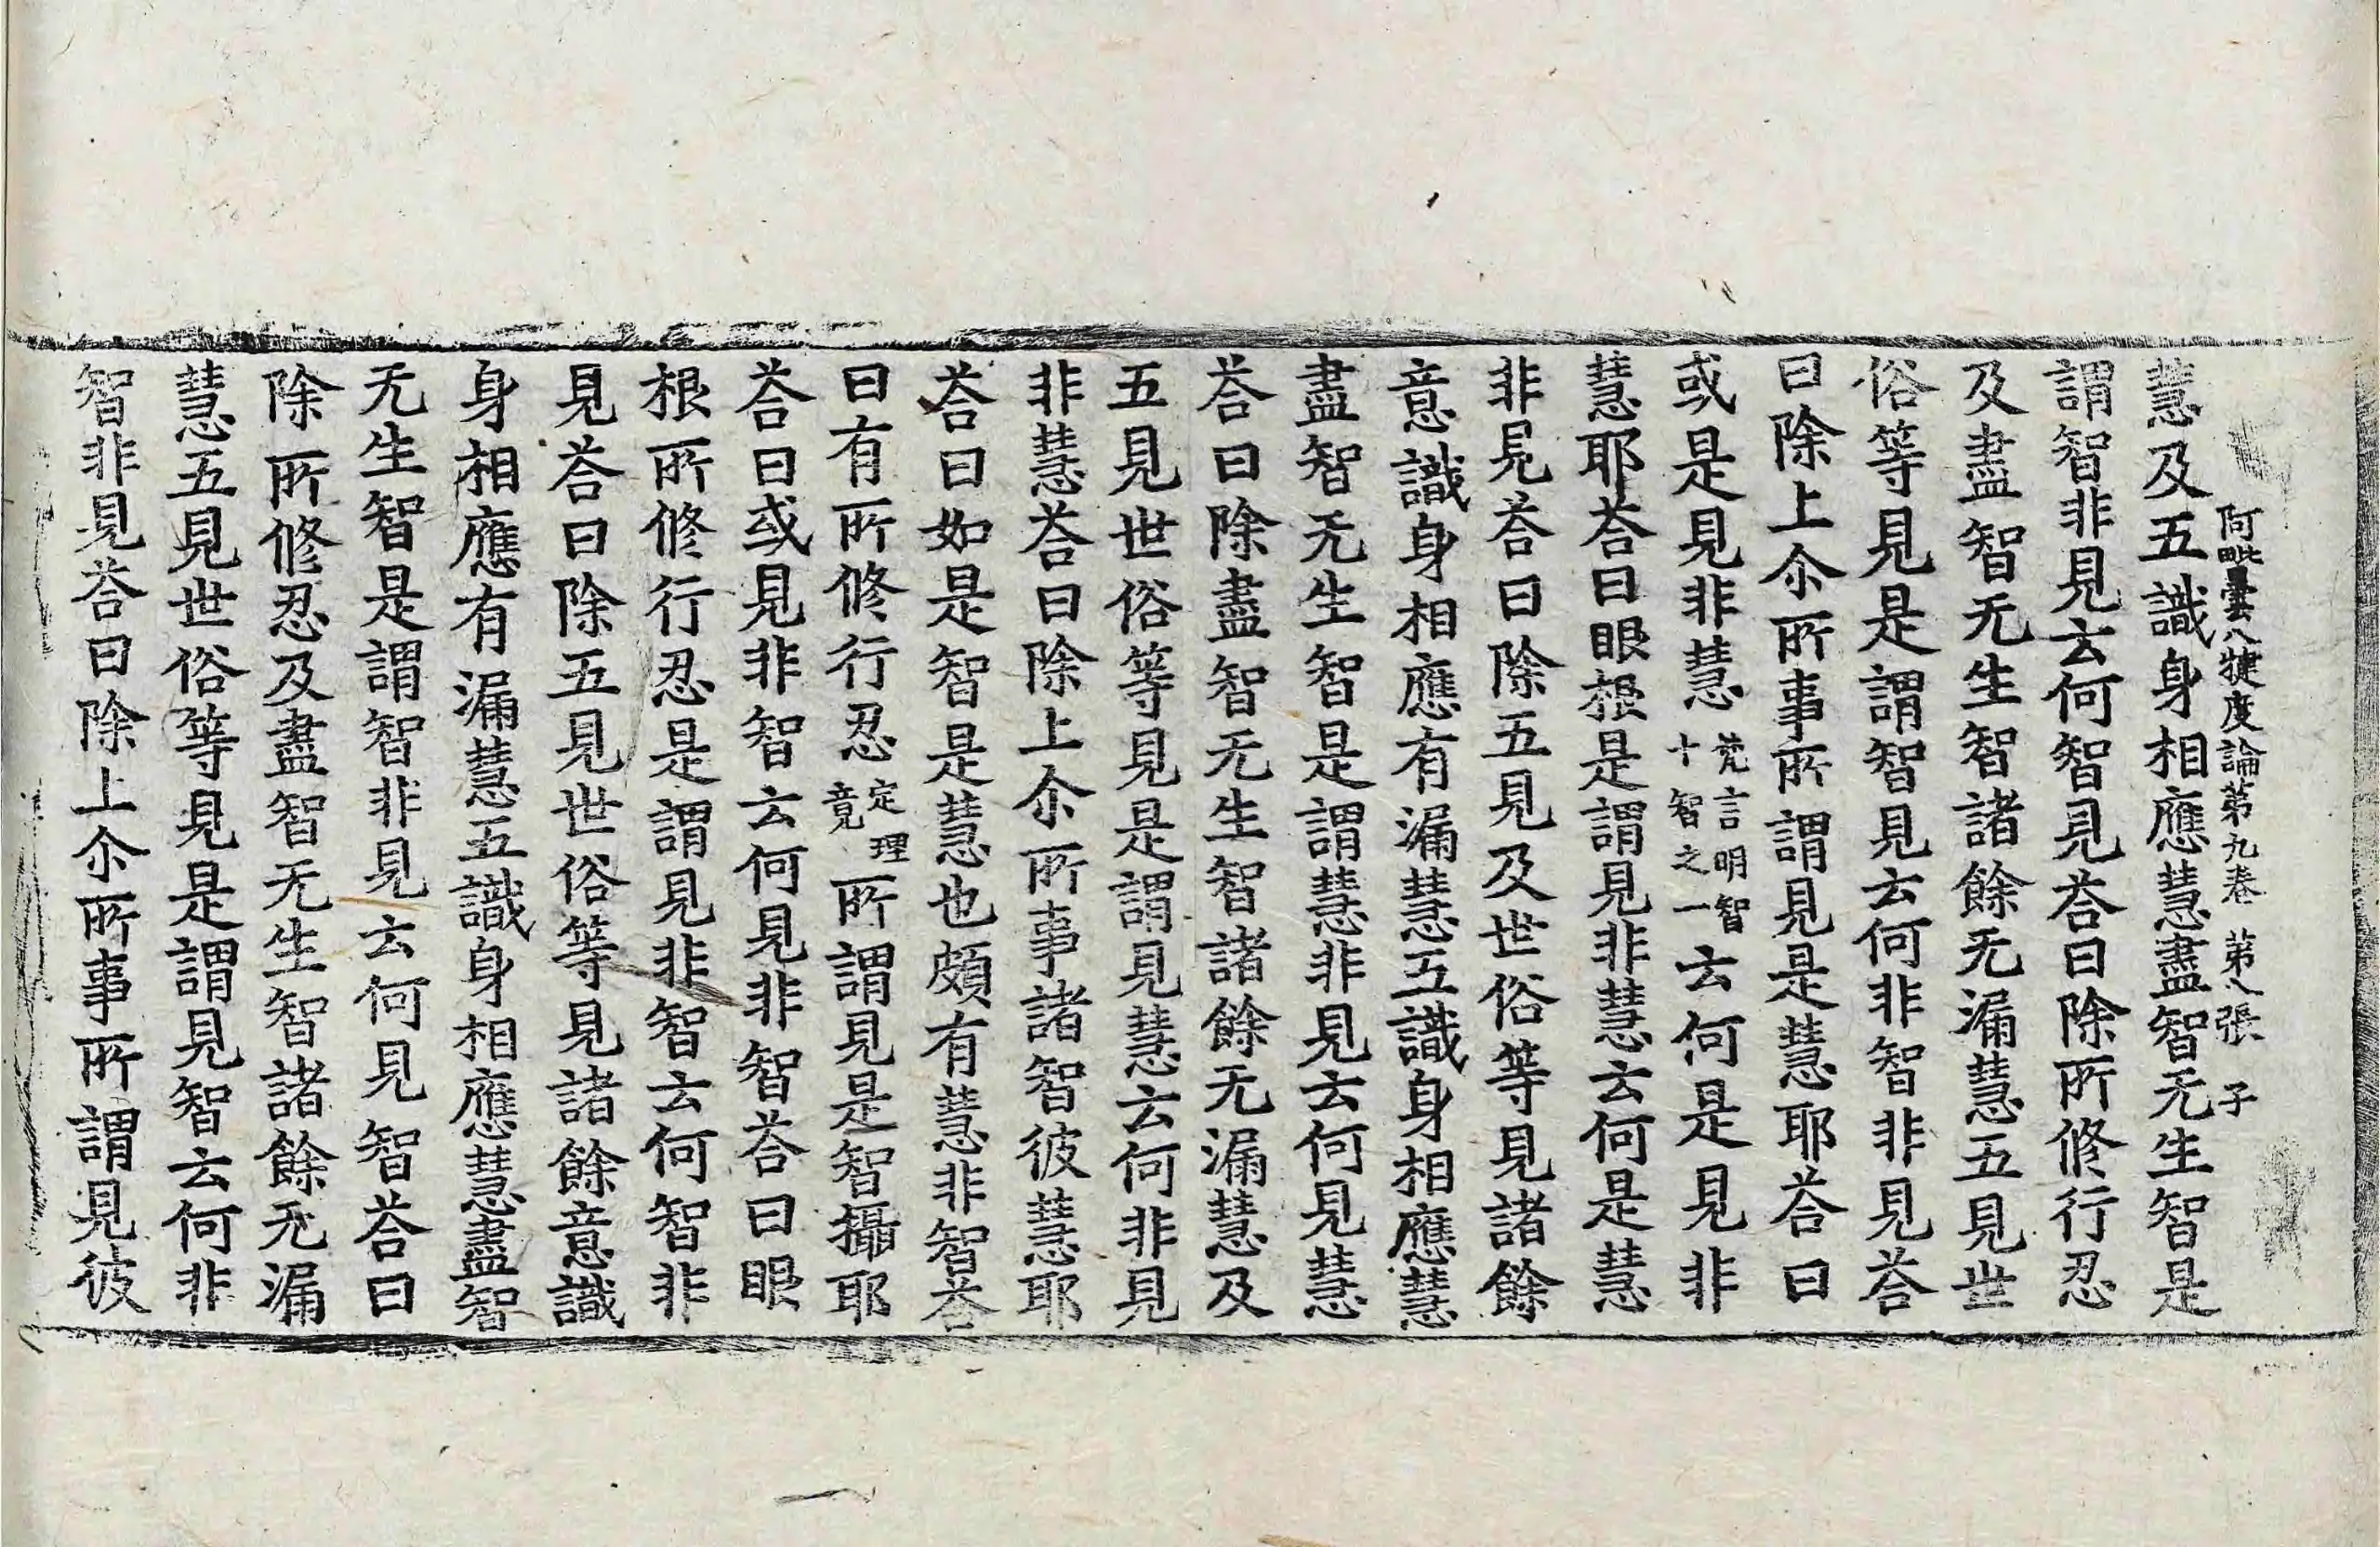 阿毗曇八犍度論第九卷　第八張　子
慧及五識身相應慧盡智无生智是
謂智非見云何智見荅曰除所修行忍
及盡智无生智諸餘无漏慧五見世
俗等見是謂智見云何非智非見荅
曰除上尒所事所謂見是慧耶荅曰
或是見非慧梵言明智十智之一云何是見非
慧耶荅曰眼根是謂見非慧云何是慧
非見荅曰除五見及世俗等見諸餘
意識身相應有漏慧五識身相應慧
盡智无生智是謂慧非見云何見慧
荅曰除盡智无生智諸餘无漏慧及
五見世俗等見是謂見慧云何非見
非慧荅曰除上尒所事諸智彼慧耶
荅曰如是智是慧也頗有慧非智荅
曰有所修行忍定理竟所謂見是智攝耶
荅曰或見非智云何見非智荅曰眼
根所修行忍是謂見非智云何智非
見荅曰除五見世俗等見諸餘意識
身相應有漏慧五識身相應慧盡智
无生智是謂智非見云何見智荅曰
除所修忍及盡智无生智諸餘无漏
慧五見世俗等見是謂見智云何非
智非見荅曰除上尒所事所謂見彼